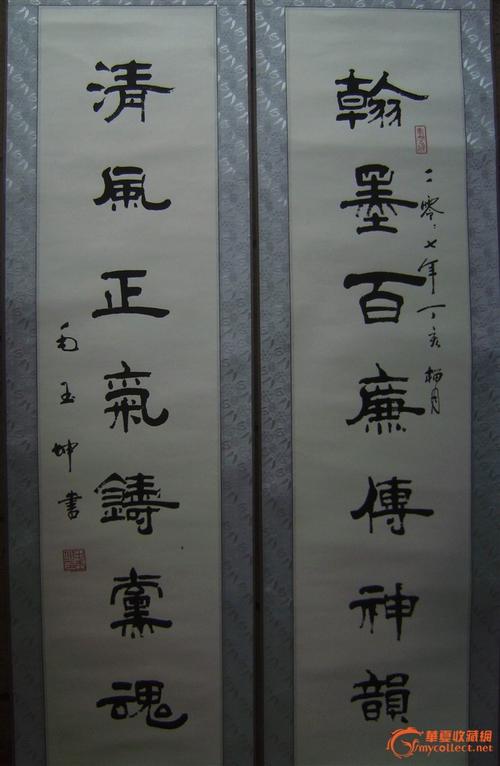 翰墨百廉傳神韻
二零零七年丁亥梅月
清風正氣鑄黨魂
毛玉坤書
華夏收藏網
mycollect.net